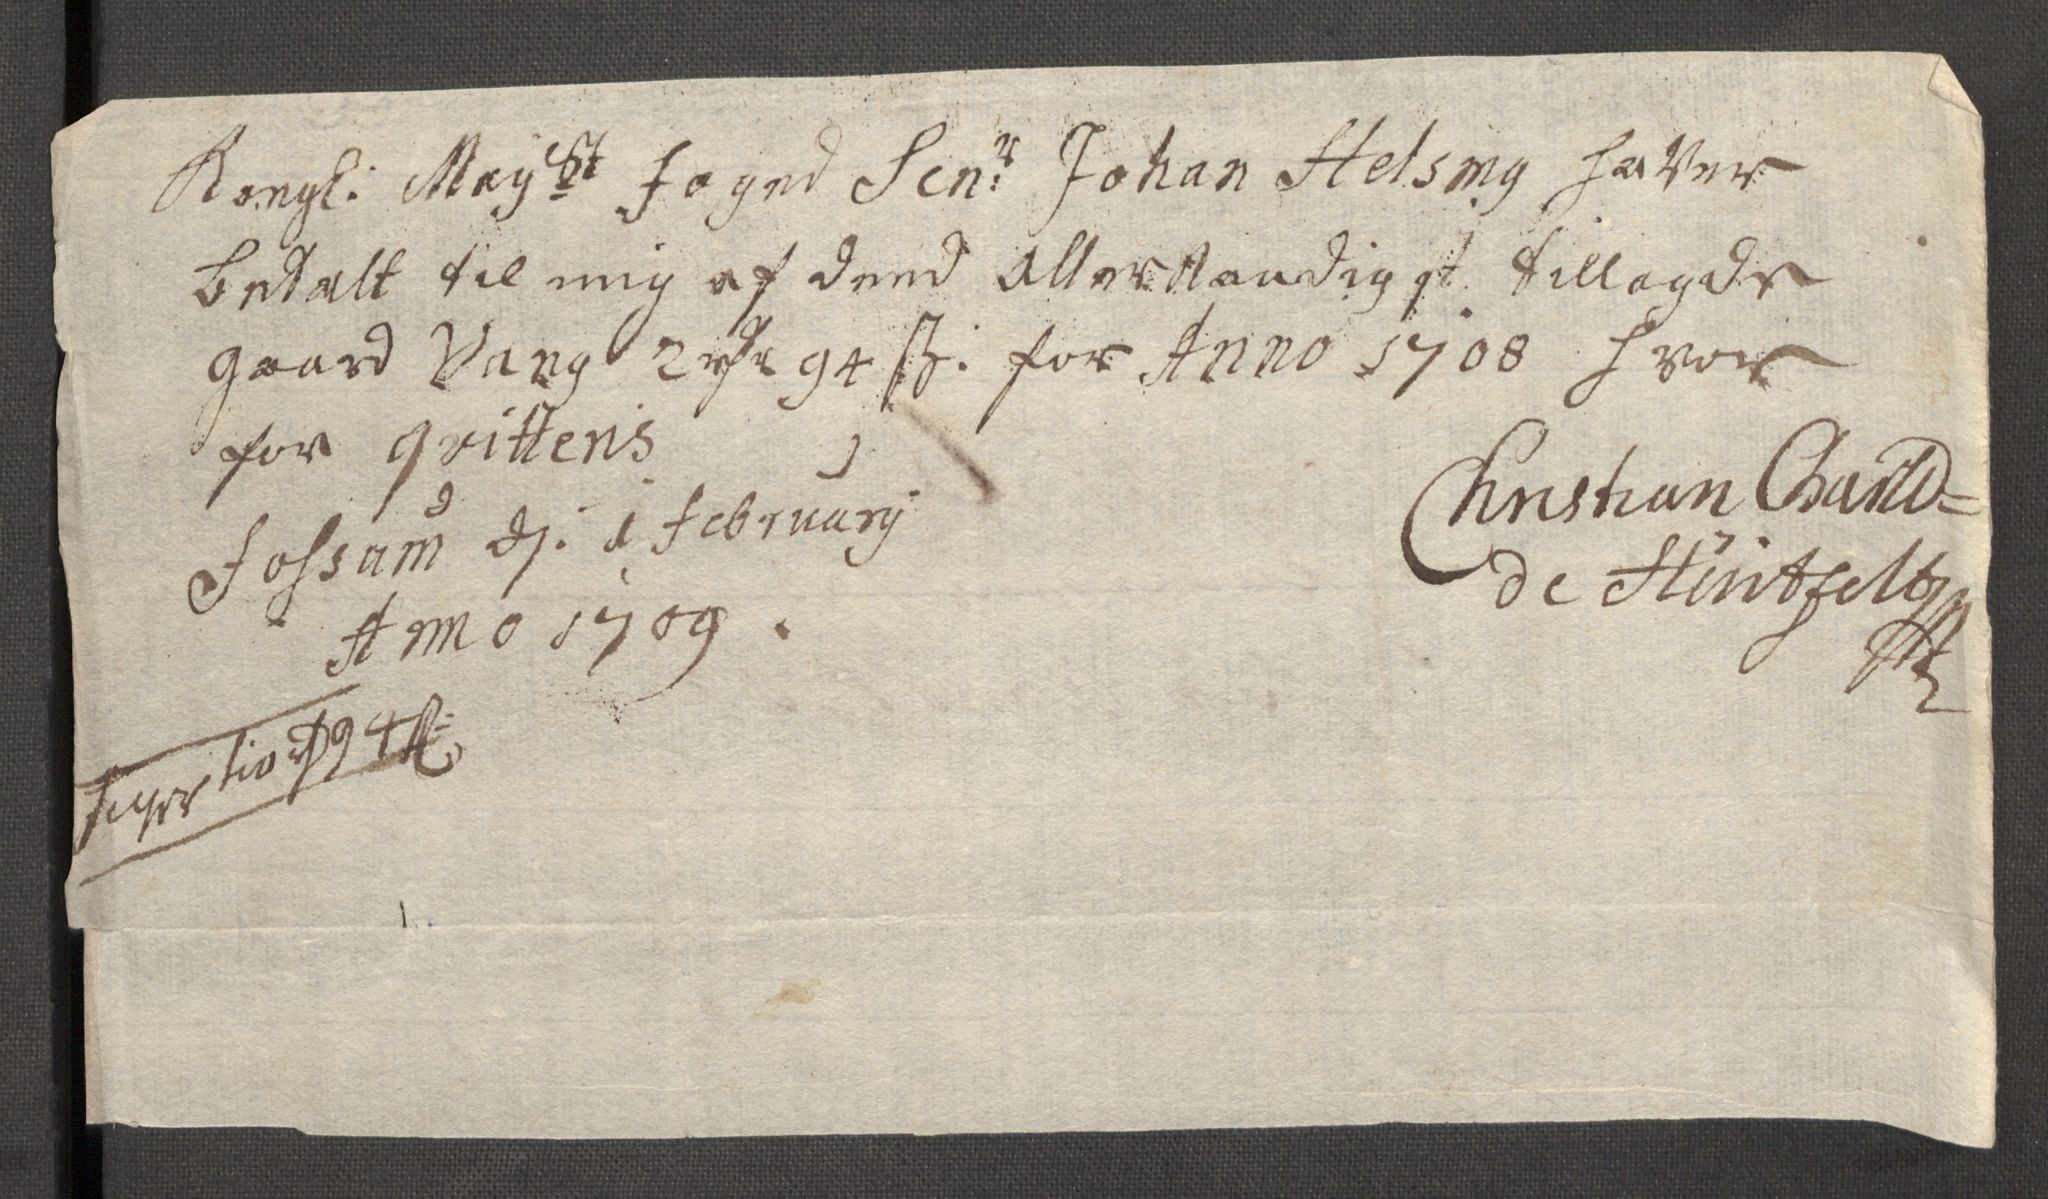 Kongl: Mayst Foged Senr: Johan Helsing haver
betalt til mig af deend Allernaadigst tillagde
gaard Vang 2 rdr 94 ß. for Anno 1708 hvor
for qvitteris
Fossum d. 1 February
Anno 1709.
Christian
de Hüitfeldt
94 ß